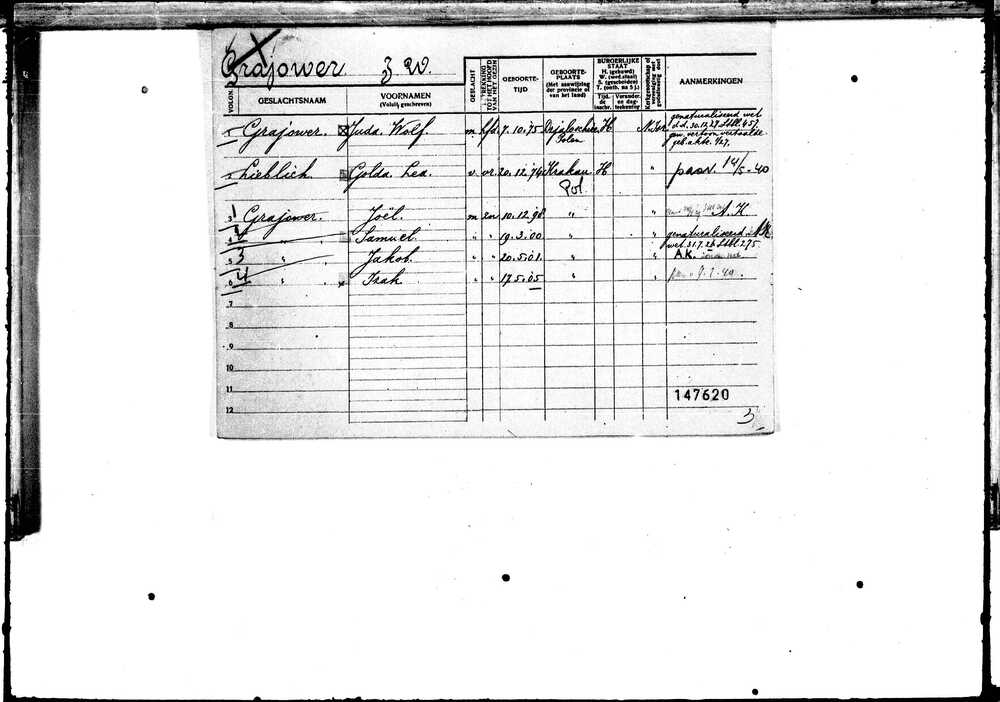 Grajower. J. W.
VOLGN. GESLACHTSNAAM VOORNAMEN (Voluit geschreven) GESLACHT BETREKKING TOT HET HOOFD VAN HET GEZIN GEBOORTE-TIJD GEBOORTE-PLAATS (Met aanwijzing der provincie of van het land) BURGERLIJKE STAAT H. (gehuwd) W. (wed.staat) S. (gescheiden) T. (ontb. na 5 j.) Tijd. de inschr. Kerkgenootschap of AANMERKINGEN
1 Grajower. Juda Wolf. m. hfd. 7.10.75 Polen H N.Isr. genaturaliseerd wet d.d. 30.12.27 Stbl. 457. geb. akte. 427.
2 Lieblich. Golda Lea. v. vr. 20.12.74 Krakau Pol. H " pasp. 14/5-40
3 1 Grajower. Joël. m zn 10.12.98 " " A.K
4 2 " Samuel. " " 19.3.00 " " genaturaliseerd A.K. wet. 31.7.26 Stbl 275
5 3 " Jakob. " " 20.5.01. " " A.K.
6 4 " Izak. " " 17.5.05 " "
7
8
9
10
11 147620
12 3